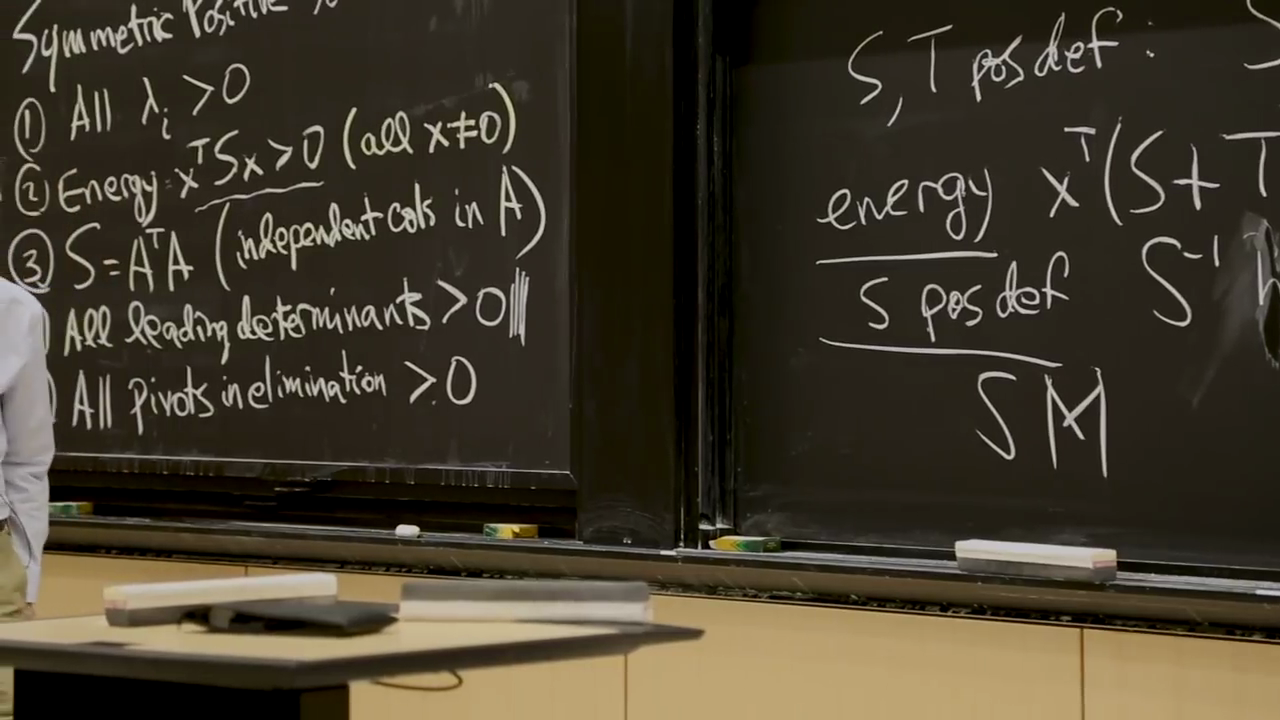 Symmetric Positive
① All λᵢ >0
② Energy = xᵀSx>0 (all x≠0)
③ S=AᵀA (independent cols in A)
All leading determinants >0
All Pivots in elimination >0
S, T pos def: S
energy xᵀ(S+T
S pos def S⁻¹
SM